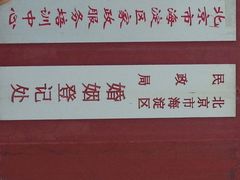 北京市海淀区家政服务培训中心
北京市海淀区
民政局
婚姻登记处